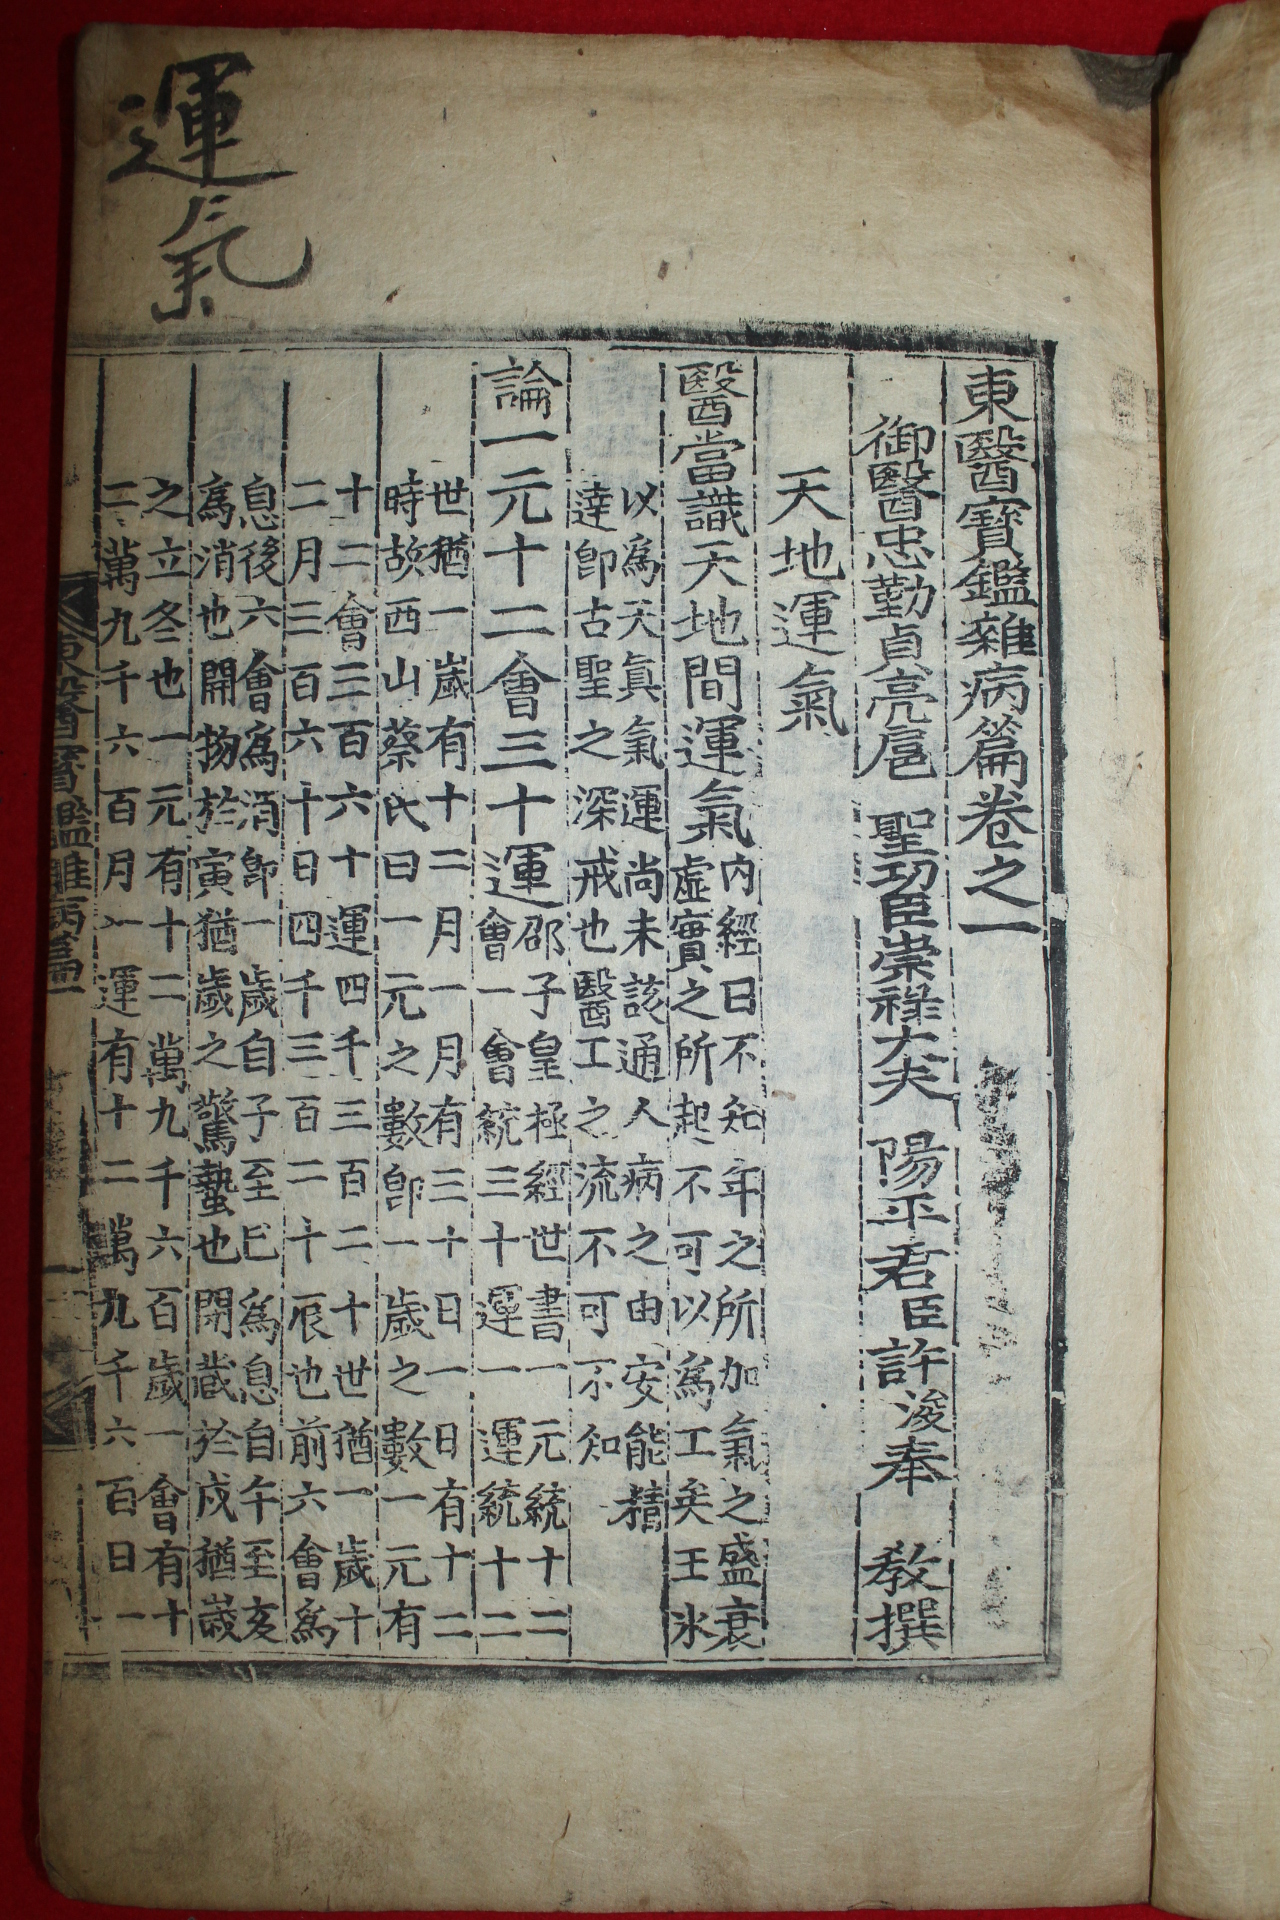 運氣
東醫寶鑑雜病篇卷之一
御醫忠勤貞亮扈 聖功臣崇祿大夫 陽平君臣許浚奉 教撰
天地運氣
醫當識天地間運氣
內經曰不知年之所加氣之盛衰
虛實之所起不可以爲工矣王氷
以爲天眞氣運尚未該通人病之由安能精
達卽古聖之深戒也醫工之流不可不知
論一元十二會三十運
邵子皇極經世書一元統十二
會一會統三十運一運統十二
世猶一歲有十二月一月有三十日一日有十二
時故西山蔡氏曰一元之數卽一歲之數一元有
十二會三百六十運四千三百二十世猶一歲十
二月三百六十日四千三百二十辰也前六會爲
息後六會爲消卽一歲自子至巳爲息自午至亥
爲消也開物於寅猶歲之驚蟄也閉藏於戌猶歲
之立冬也一元有十二萬九千六百歲一會有十
二萬九千六百月一運有十二萬九千六百日一
東醫寶鑑雜病篇一